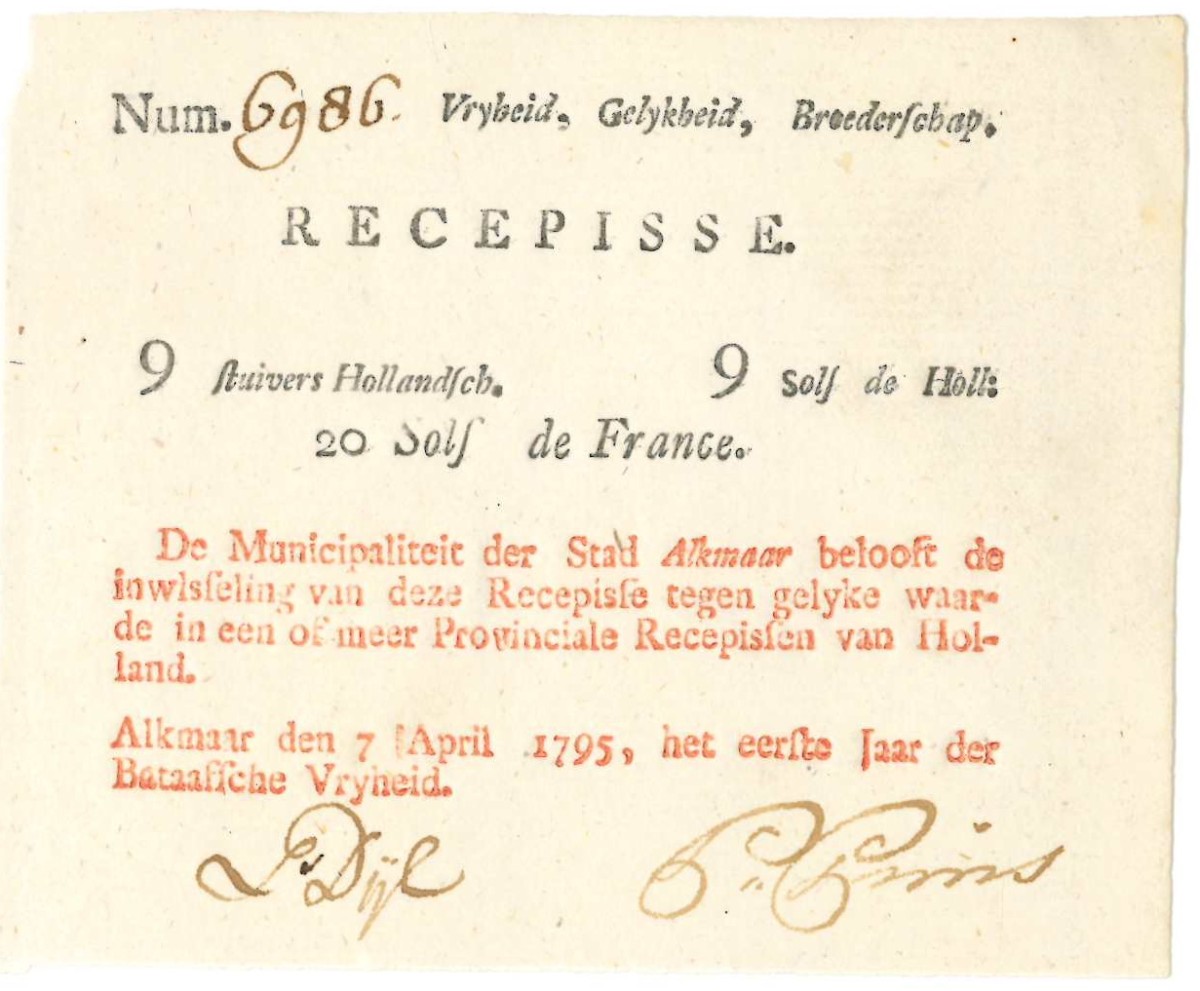 Num. 6986. Vryheid, Gelykheid, Broederſchap.
RECEPISSE.
9 ſtuivers Hollandſch. 9 Solſ de Holl:
20 Solſ de France.
De Municipaliteit der Stad Alkmaar belooft de
inwlsſeling van deze Recepisſe tegen gelyke waar-
de in een of meer Provinciale Recepisſen van Hol-
land.
Alkmaar den 7 April 1795, het eerſte Jaar der
Bataafſche Vryheid.
Dijl P. Prins